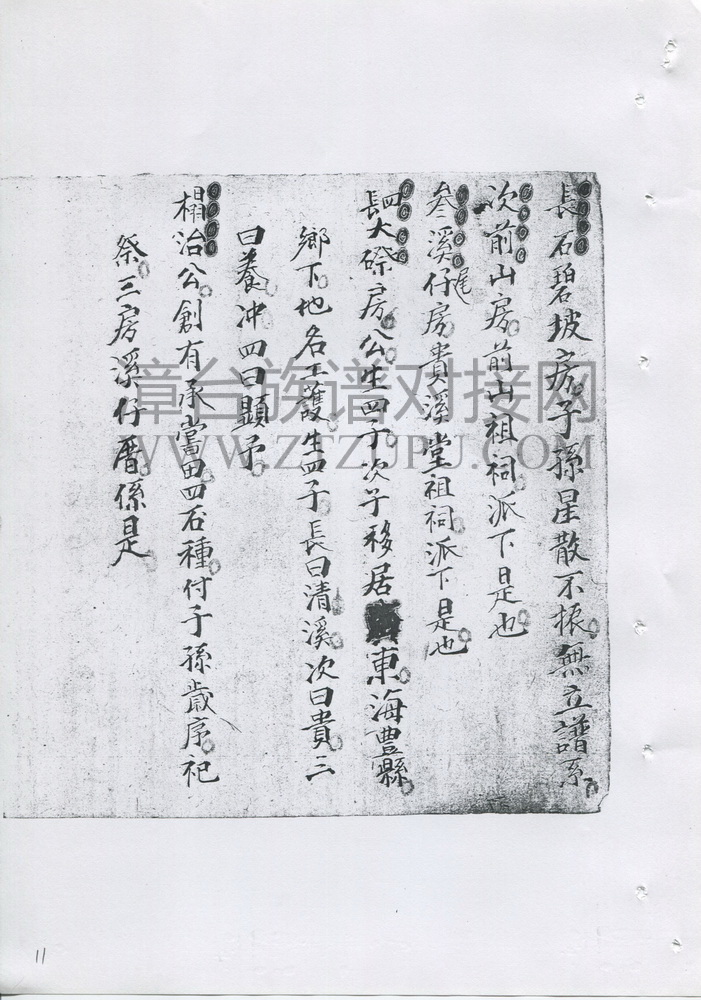 長石碧坡房子孫星散不振無立譜系
次前山房前山祖祠派下是也
叁溪仔尾房貴溪堂祖祠派下是也
四長大磜房公生四子次子移居廣東海豐縣
鄉下地名工護生四子長曰清溪次曰貴三
曰養冲四曰顯予
榻治公創有承當田四石種付子孫歲序祀
祭三房溪仔厝係是
漳台族谱对接网
WWW.ZTZUPU.COM
11